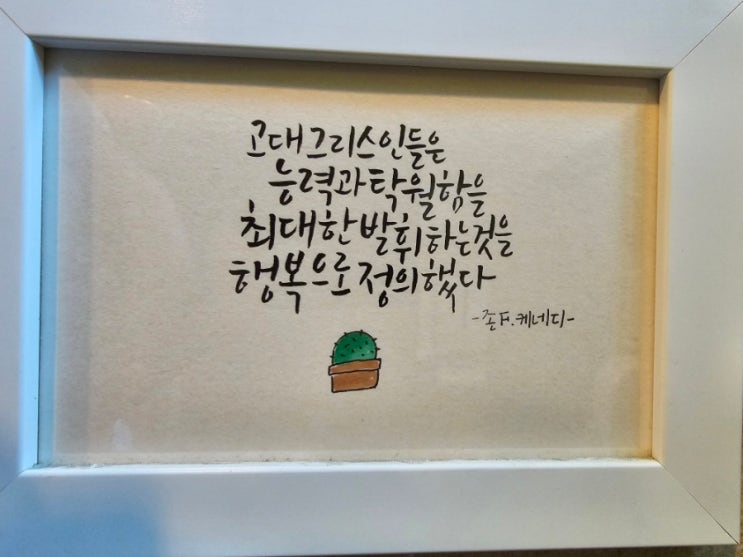 고대 그리스인들은
능력과 탁월함을
최대한 발휘하는것을
행복으로 정의했다
-존 F. 케네디-